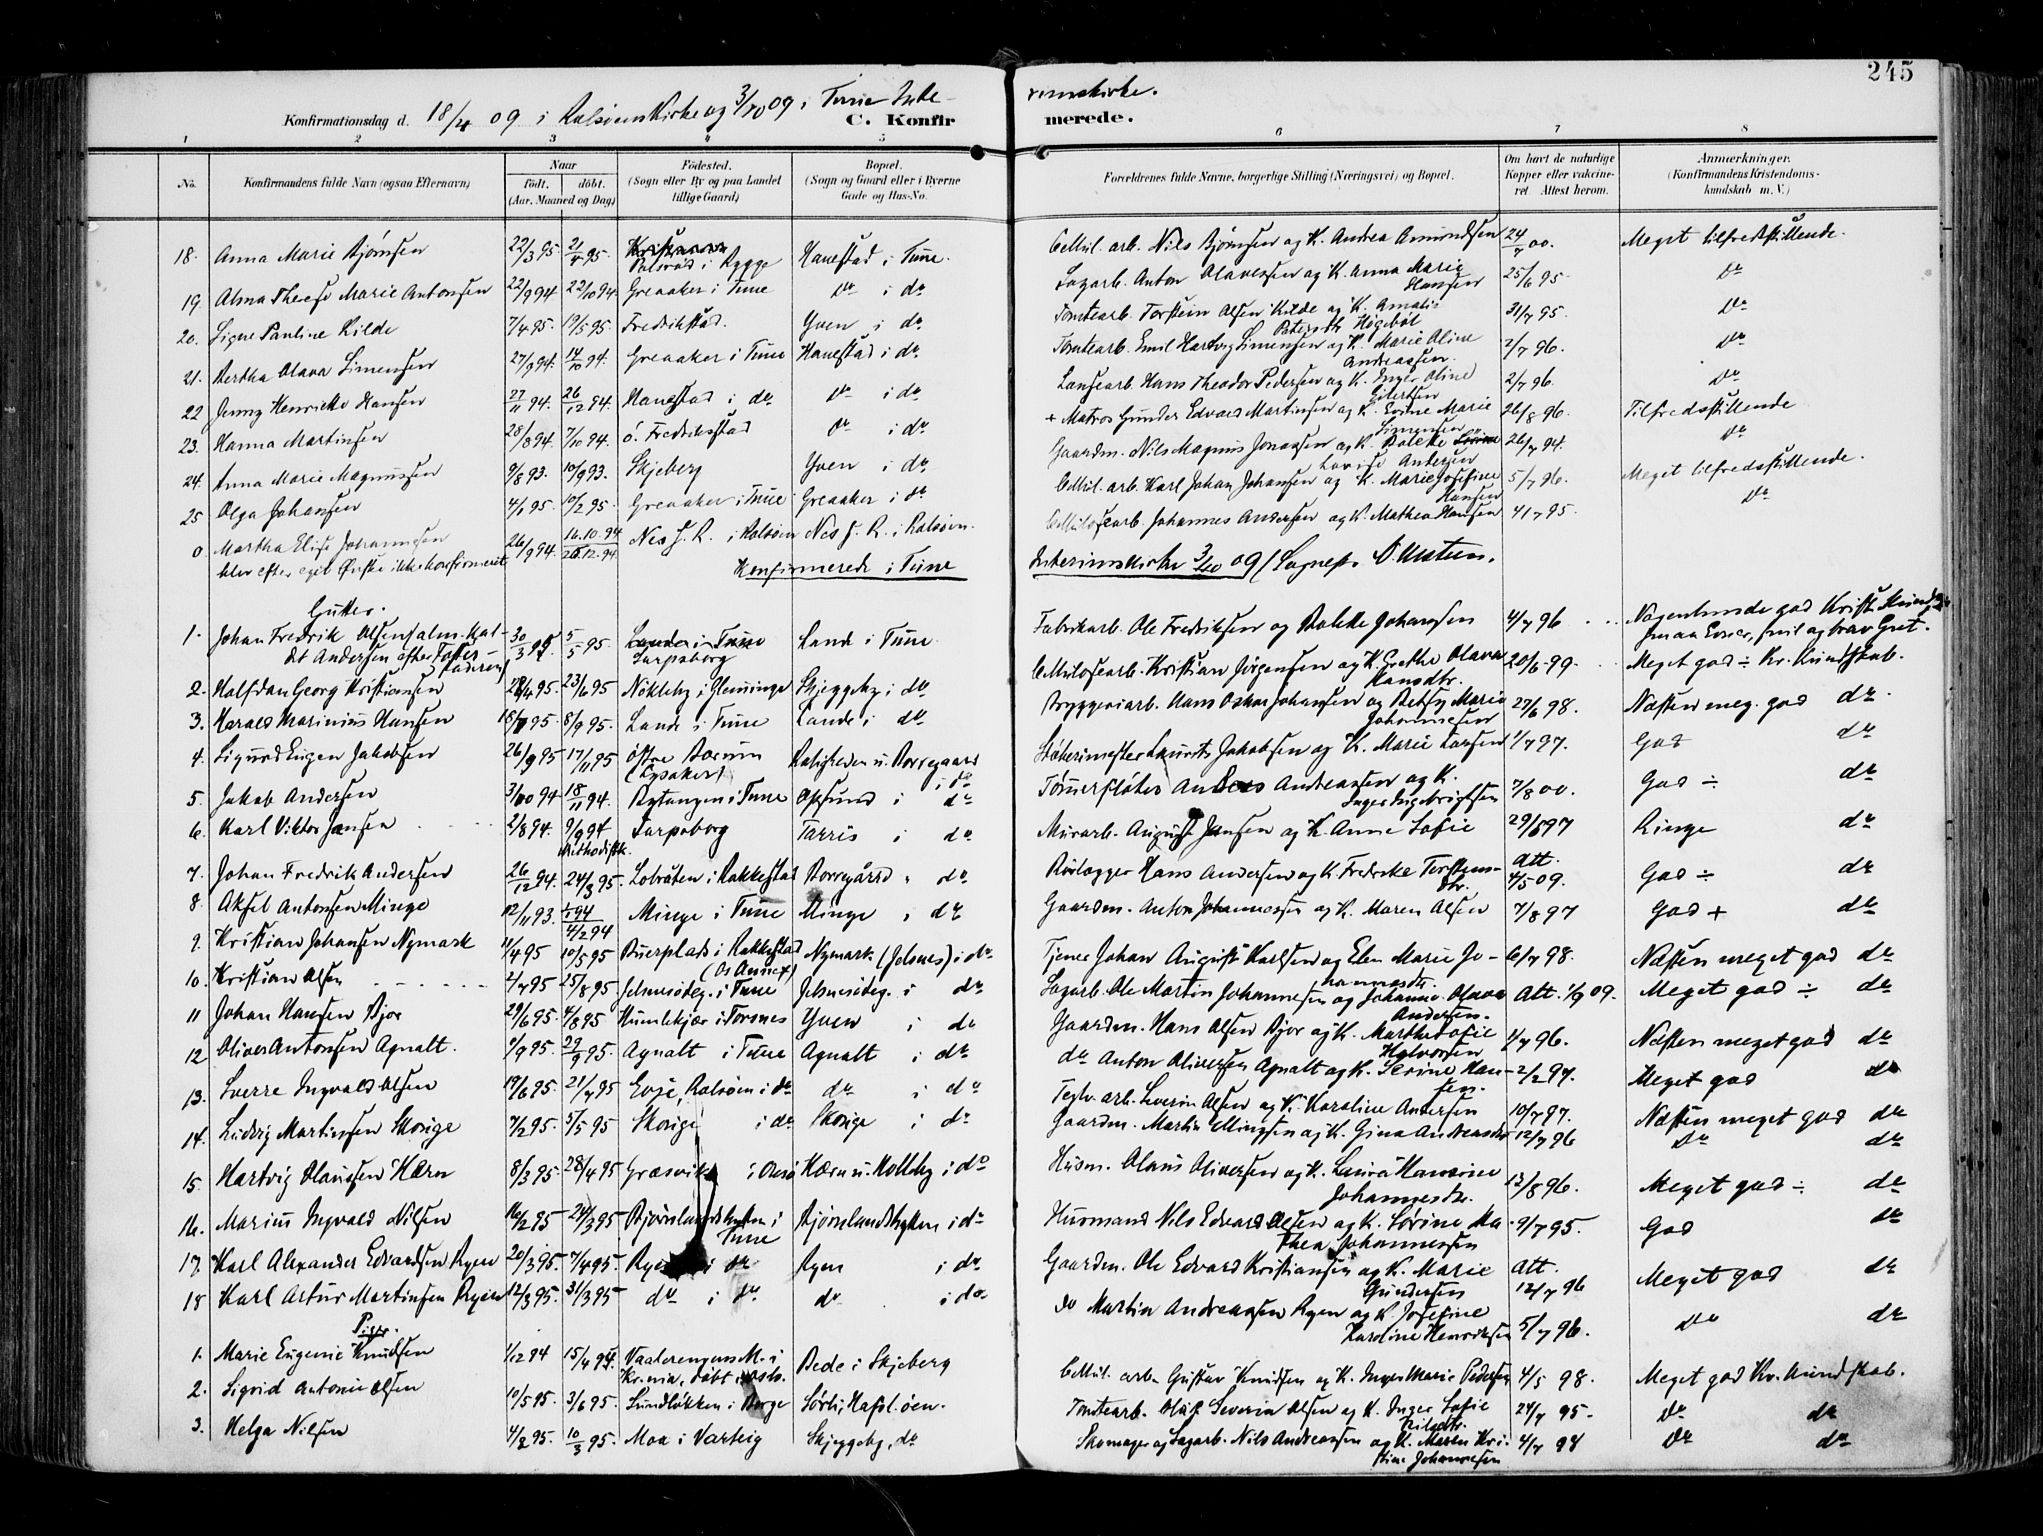 245
Konfirmationsdag d. 18/4 09 i Rolsöens Kirke og 3/10 09 i Tune Inte-
rimskirke.
C. Konfir
merede.
1 2 3 4 5 6 7 8
No. Konfirmandens fulde Navn (ogsaa Efternavn) Naar født. døbt. (Aar, Maaned og Dag) Födested. (Sogn eller By og paa Landet tillige Gaard) Bopæl. (Sogn og Gaard eller i Byerne Gade og Hus-No. Forældrenes fulde Navne, borgerlige Stilling (Næringsvei) og Bopæl. Om havt de naturlige Kopper eller vakcineret Attest herom. Anmærkninger. (Konfirmandens Kristendomskundskab m. V.)
18. Anna Marie Bjørnsen 22/3 95 21/4 95. i Rygge Hanestad i Tune. Cellul. arb. Nils Bjørnsen og K. Andrea Amundsen 24/7 00. Meget tilfredsstillende.
19. Alma Therese Marie Antonsen 22/9 94 22/10 94. Greaaker i Tune do i do Sagarb. Anton Olavessen og K. Anna Marie Hansen 25/6 95 do
20. Signe Pauline Kilde 7/4 95. 19/5 95. Fredrikstad. Yven i do Tomtearb. Torstein Olsen Kilde og K. Amalie Petersdtr. Høgebøl 31/7 95. do
21. Bertha Olava Simensen 27/9 94. 14/10 94. Greaaker i Tune Hanestad i do Tomtearb. Emil Hartvig Simensen og K. Marie Oline Andreassen. 2/7 96. do
22 Jenny Henrikke Hansen 27/11 94. 26/12 94. Hanestad i do do i do Lansearb. Hans Theodor Pedersen og K. Inger Oline Eilertsen 2/7 96. do
23. Hanna Martinsen 28/8 94. 7/10 94. ö. Fredrikstad do i do + Matros Gunder Edvard Martinsen og K. Evine Marie Simensen 26/8 96. Tilfredsstillende
24. Anna Marie Magnussen 9/8 93. 10/9 93. Skjeberg Yven i do Gaardm. Nils Magnus Jonassen og K. Bolette Lovise Andersen 26/7 94. do
25 Olga Johansen 4/1 95 10/2 95. Greaaker i Tune Greaaker i do Cellul. arb. Karl Johan Johansen og K. Marie Josefine Hansen 5/7 96. Meget tilfredsstillende.
0 Martha Elise Johannesen 26/9 94. 16.10.94 26.12.94. Nes J. R. i Rolsöen Nes J. R. i Rolsöen. Cellulosearb. Johannes Andersen og K. Mathea Hansen 4/7 95. do
blev efter eget Ønske ikke konfirmeret
Konfirmerede i Tune
Interimskirke 3/10 09 (Sognepr.
Gutter.
1. Johan Fredrik Olsen 30/3 95 5/5 95. Sarpsborg Lande i Tune. Fabrikarb. Ole Fredriksen og Bolette Johansen 4/7 96
2. Halfdan Georg Kristiansen 23/6 95 Nökleby i Glemminge Skjeggeby i do Cellulosearb. Kristian Jörgensen og K. Grethe Olava Hansdtr. 20/6 99. Meget god ÷ Kr. Kundskab.
3. Harald Marinius Hansen 8/9 95. Lande i Tune Lande i do Bryggeriarb. Hans Oskar Johansen og Betsy Marie Johannesen 27/6 98. Næsten meg. god do
4. Sigurd Eugen Jakobsen 26/9 95 17/11 95 östre Bærum (Lysaker) Roligheden u. Borregaard i do Støberimester Laurits Jakobsen og K. Marie Larsen 1/7 97. God do
5. Jakob Andersen 3/10 94 18/11 94. i Tune Opsund i do Tømmerfløter Anders Andreassen og K. Inger Ingebrigtsen 7/8 00. God ÷ do
6. Karl Viktor Jansen 2/8 94. 9/9 94 Methodistk. Sarpsborg Tarris i do Murarb. August Jansen og K. Anne Sofie 29/6 97 Ringe do
7. Johan Fredrik Andersen 26/12 94. 24/3 95. i Rakkestad Borregård " do Rørlægger Hans Andersen og K. Fredrikke Torstensdtr. Att. 4/5 09. God ÷ do
8. Aksel Antonsen Minge 12/11 93. 4/2 94 Minge i Tune Minge i do Gaardm. Anton Johannessen og K. Maren Olsen 7/8 97 God + do
9. Kristian Johansen Nymark 11/4 95 10/5 95 i Rakkestad (Os Annex) Nymark (Jelsnes) i do Tjener Johan August Karlsen og Elen Marie Johannesdtr. 6/7 98. Næsten meget god do
10. Kristian Olsen 2/7 95 25/8 95 Jelsnesödeg. i Tune Jelsnesödeg. i do Sagarb. Ole Martin Johannesen og Johanne Olava Andersen. Att. 1/9 09. Meget god ÷ do
11 Johan Hansen Bjor 29/6 95. 4/8 95 Humlekjær i Torsnes Yven i do Gaardm. Hans Olsen Bjor og K. Marthe Sofie Halvorsen 4/7 96. Næsten meget god do
12 Oliver Antonsen Agnalt. 1/9 95. 29/9 95. Agnalt i Tune Agnalt i do do Anton Oliversen Agnalt og K. Serine Hansen. 2/2 97. Meget god do
13. Sverre Ingvald Olsen 19/6 95. 21/7 95 Evje, Rolsöen i do do i do Teglv. arb. Severin Olsen og K. Karoline Andersen 10/7 97. Næsten meget god do
14. Ludvig Martinsen Skorige 7/2 95. 5/5 95 Skorige i do Skorige i do Gaardm. Martin og K. Gina Andreasdtr 12/7 96 do do
15. Hartvig Olaussen Hærn 8/3 95 28/4 95 Græsvik i Onsö Hærn u. Kolleby i do Husm. Olaus Oliversen og K. Laura Johannesdtr. 13/8 96. Meget god ÷ do
16. Marius Ingvald Nilsen 16/2 95 24/3 95 Bjørnlandshytten i Tune Bjørnlandshytten i do Husmand Nils Edvard Olsen og K. Sörine Mathea Johannessen 9/7 95. God do
17. Karl Alexander Edvardsen Ryen 20/3 95. 7/4 95. Ryen i do Ryen i do Gaardm. Ole Edvard Kristiansen og K. Marie Gundersen Att. 12/7 96 Meget god do
18 Karl Artur Martinsen Ryen 12/3 95. 31/3 95 do i do do i do do Martin Andreassen Ryen og K. Josefine Karoline Henriksen 5/7 96. do do
Piger.
1. Marie Eugenie Knudsen 1/12 94 15/4 95. Vaalerengens M. i Kr.nia, döbt i Oslo. Bede i Skjeberg Cellul. arb. Gustav Knudsen og K. Inger Marie Pedersen 4/5 98. Meget god Kr. Kundskab.
2. Sigrid Antonie Olsen 10/5 95. 3/6 95. Sundløkken i Borge Sörli, Hafsl.öen. Tomtearb. Oluf Severin Olsen og K. Inger Sofie Nilsdtr. 24/7 95. do do
3. Helga Nilsen 4/2 95. 10/3 95. Moa i Varteig Skjeggeby, do Skomager og Sagarb. Nils Andreassen og K. Maren Kristine Johannesen 4/7 98 do do